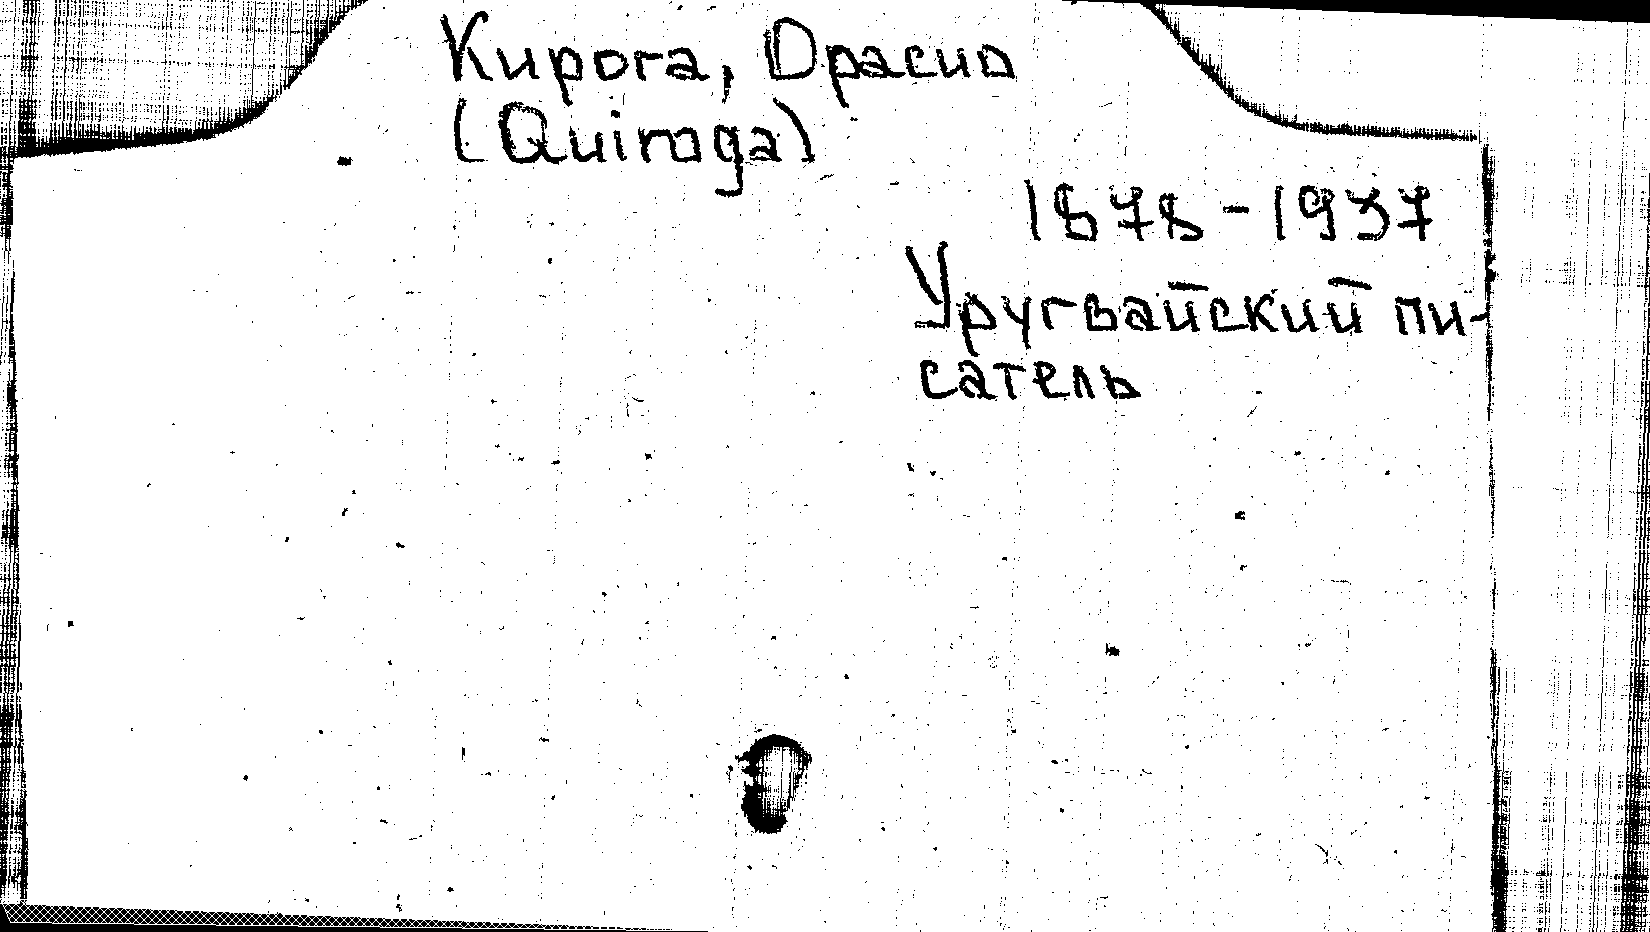 Кирога, Орасио
(Quiroga)
1878-1937
Уругвайский пи-
сатель